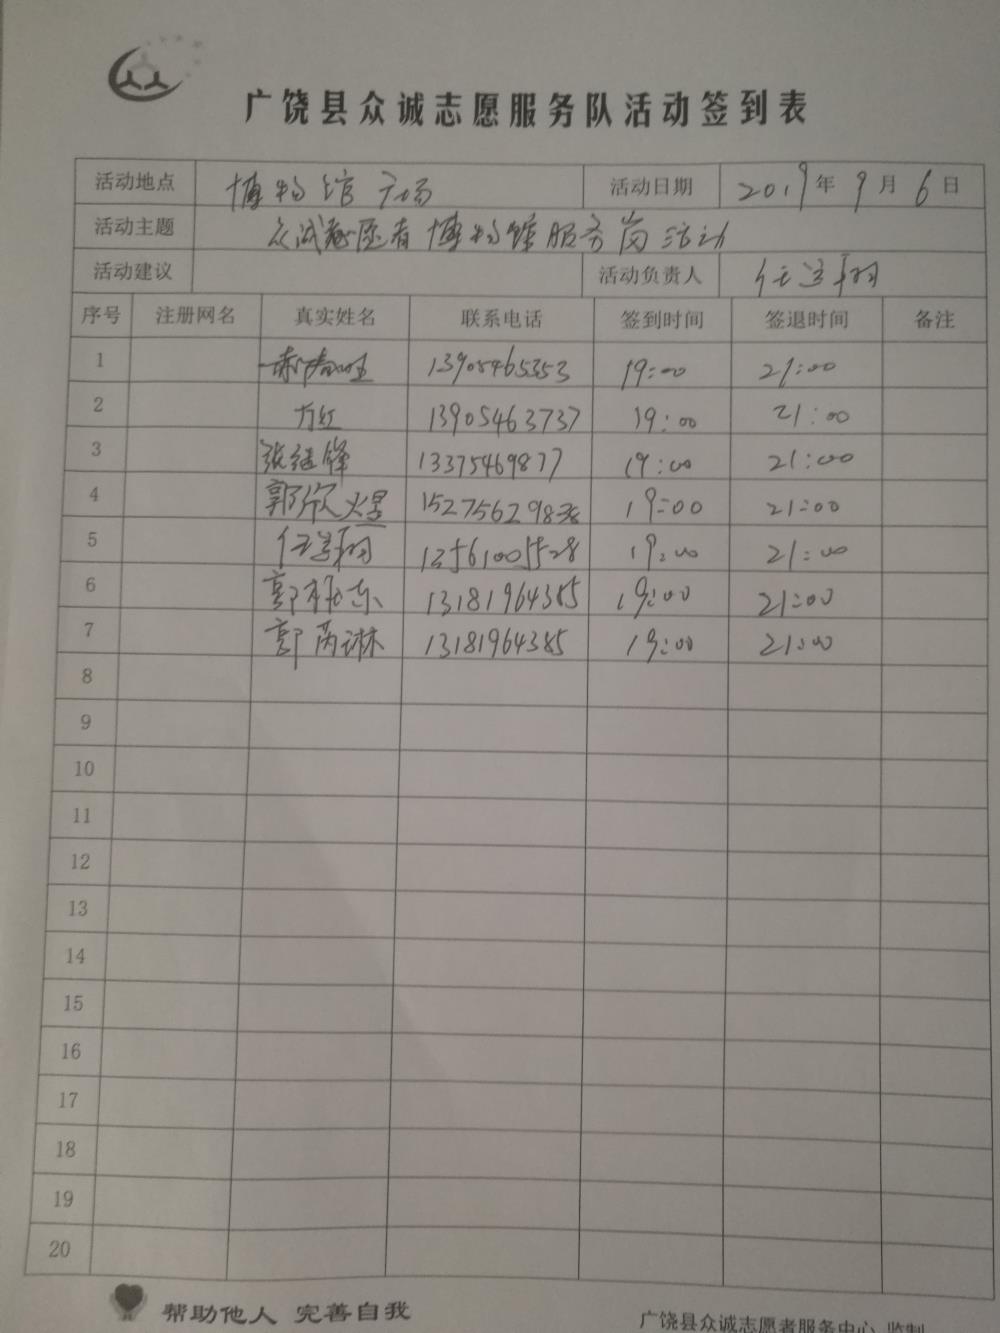 广饶县众诚志愿服务队活动签到表
活动地点 博物馆广场 活动日期 2019年9月6日
活动主题 众诚志愿者博物馆服务岗活动
活动建议 活动负责人 任
序号 注册网名 真实姓名 联系电话 签到时间 签退时间 备注
1 13905465353 19:00 21:00
2 方红 13905463737 19:00 21:00
3 张继锋 13375469877 19:00 21:00
4 郭欣煜 15275629838 19:00 21:00
5 任 13561005528 19:00 21:00
6 郭振东 13181964385 19:00 21:00
7 郭芮琳 13181964385 19:00 21:00
8
9
10
11
12
13
14
15
16
17
18
19
20
帮助他人 完善自我
广饶县众诚志愿者服务中心 监制